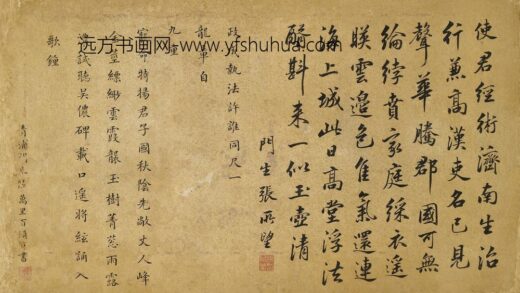 远方书画网 www.yfshuhua.com
使君經術濟南生治
行兼高漢吏名已見
聲華騰郡國可無
綸綍賁家庭綵衣遙
映雲邊色隹氣還連
海上城此日高堂浮法
醑斟來一似玉壺清
門生張所望
政成執法許誰同尺一
龍章自
九重
特揚君子國秋陰先啟丈人峰
縹緲雲霞籠玉樹菁蔥雨露
誠聽吳儂碑載口遙將絃誦入
歌鐘
萬里百頓首書